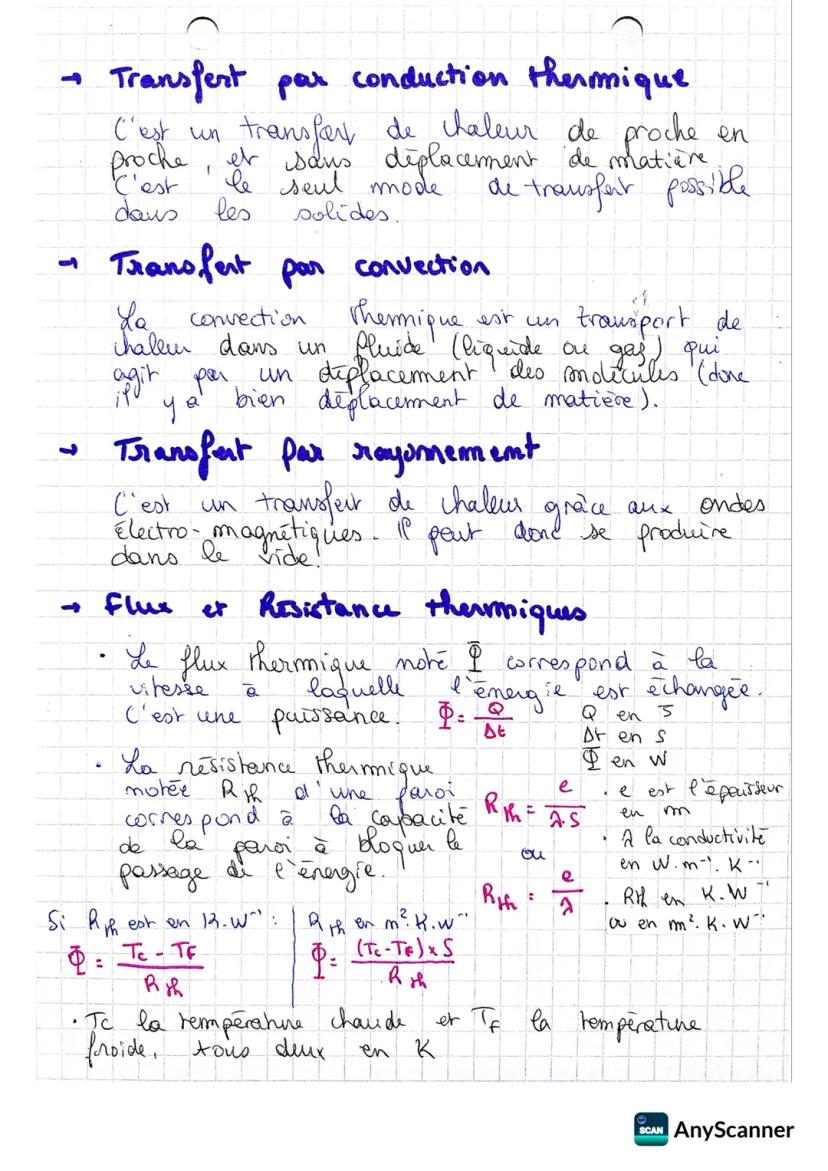 → Transfert par conduction thermique
C'est un transfert de chaleur de proche en
proche, et sans déplacement de matière.
C'est le seul mode de transfert possible
dans les solides.
→ Transfert par convection
La convection thermique est un transport de
chaleur dans un fluide (liquide ou gaz) qui
agit par un déplacement des molécules (donc
il y a bien déplacement de matière).
→ Transfert par rayonnement
C'est un transfert de chaleur grâce aux ondes
électro-magnétiques. Il peut donc se produire
dans le vide!
→ Flux et Résistance thermiques
• Le flux thermique noté Φ correspond à la
vitesse à laquelle l'énergie est échangée.
C'est une puissance. Φ = Q/Δt
Q en J
Δt en s
Φ en W
• La résistance thermique
notée Rth d'une paroi
correspond à la capacité
de la paroi à bloquer le
passage de l'énergie.
Rth = e/λ.S
ou
Rth = e/λ
• e est l'épaisseur
en m
• λ la conductivité
en W.m⁻¹.K⁻¹
• Rth en K.W⁻¹
ou en m².K.W⁻¹
Si Rth est en K.W⁻¹ :
Φ = Tc - TF / Rth
Rth en m².K.W⁻¹
Φ = (Tc-TF) x S / Rth
• Tc la température chaude et TF la température
froide, tous deux en K
SCAN AnyScanner